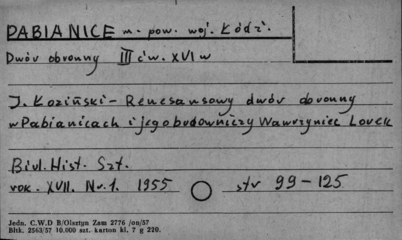 PABIANICE m. pow. woj. Łódź.
Dwór obronny III ćw. XVI w
J. Łoziński - Renesansowy dwór obronny
w Pabianicach i jego budowniczy Wawrzyniec Lorek
Biul. Hist. Szt.
rok. XVII. Nr. 1. 1955 str 99-125
Jedn. C.W.D B/Olsztyn Zam 2776 /on/57
Blkt. 2563/57 10.000 szt. karton kl. 7 g 220.